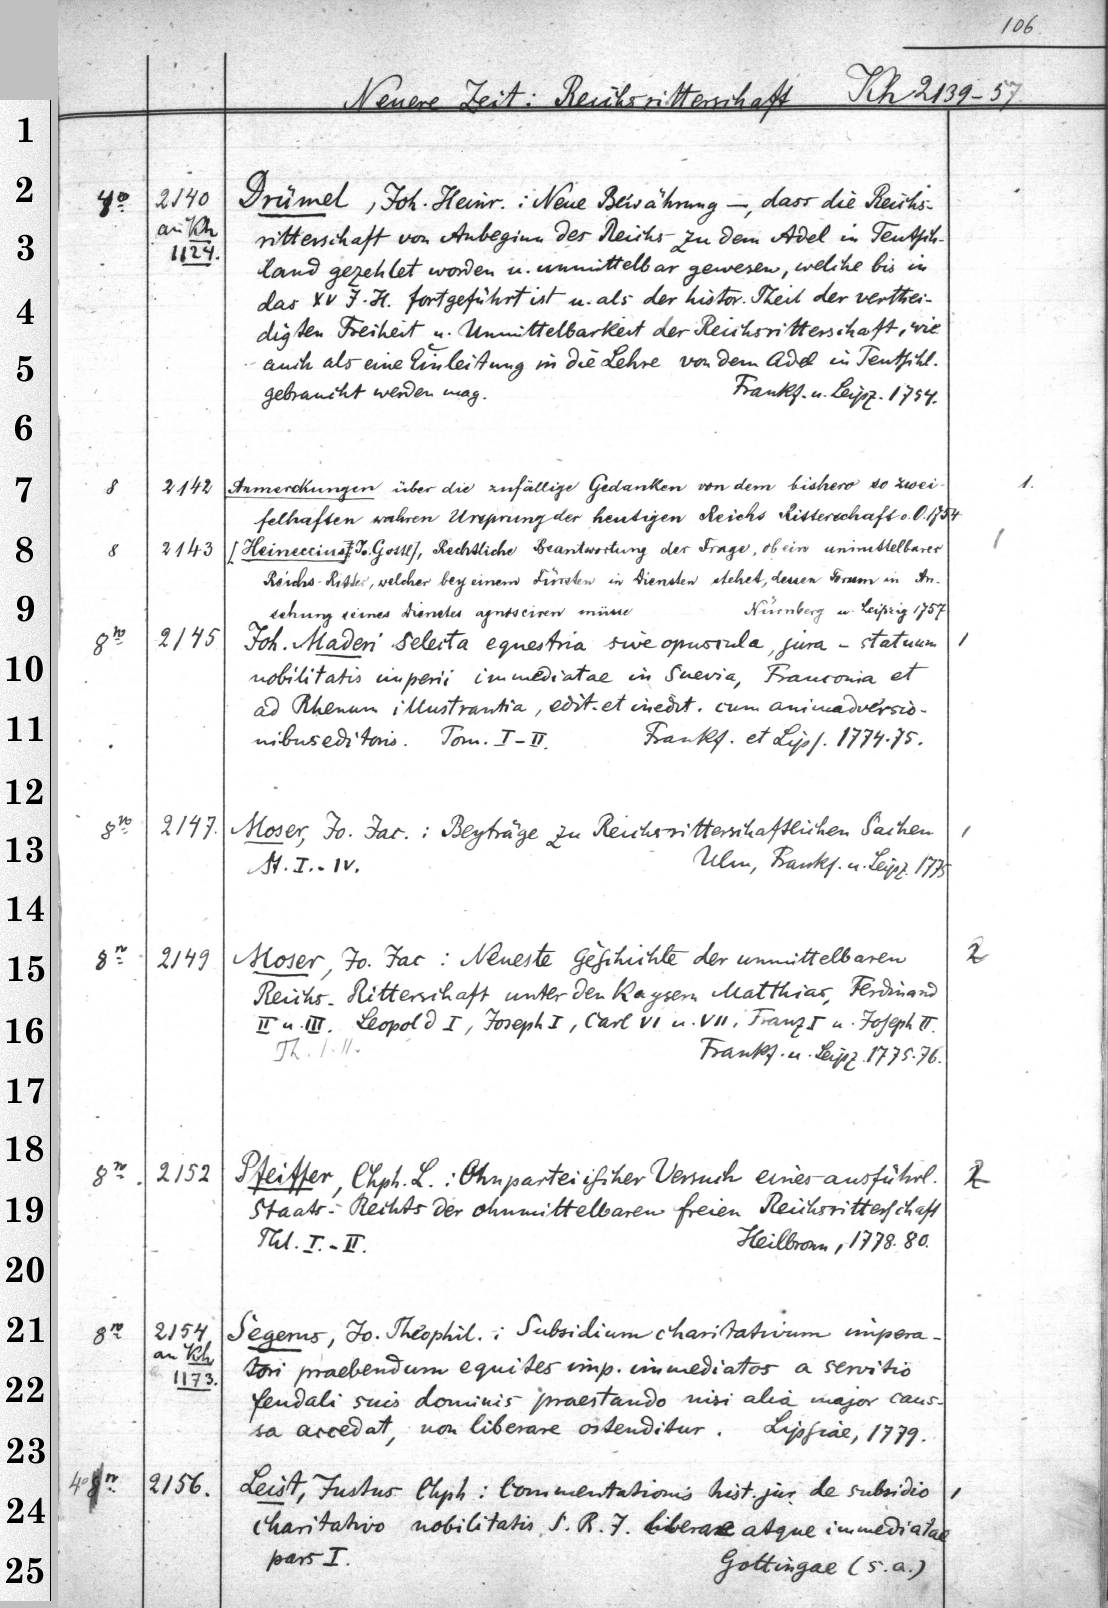 106
Neuere Zeit: Reichsritterschaft Kh 2139-57
1
2
4o 2140 Drümel, Joh. Heinr. : Neue Bewährung —, dass die Reichs-
an Kh
3
ritterschaft von Anbeginn des Reichs zu dem Adel in Teutsch-
1124.
land gezehlet worden u. unmittelbar gewesen, welche bis in
4
das XV J.H. fortgeführt ist u. als der histor. Theil der verthei-
digten Freiheit u. Unmittelbarkeit der Reichsritterschaft, wie
5
auch als eine Einleitung in die Lehre von dem Adel in Teutschl.
gebraucht werden mag. Frankf. u. Leipz. 1754.
6
7
8 2142 Anmerckungen über die zufällige Gedanken von dem bishero so zwei- 1.
felhaften wahren Ursprung der heutigen Reichs Ritterschaft o.O. 1754
8
8 2143 [Heineccius, Jo. Gottl], Rechtliche Beantwortung der Frage, ob ein unmittelbarer 1
Reichs-Ritter, welcher bey einem Fürsten in Diensten stehet, dessen Forum in An-
9
sehung seines Dienstes agnosciren müsse Nürnberg u. Leipzig 1757
8vo 2145 Joh. Maderi selecta equestria sive opuscula, jura - statuum 1
10
nobilitatis imperii immediatae in Suevia, Franconia et
ad Rhenum illustrantia, edit. et inedit. cum animadversio-
11
nibus editoris. Tom. I-II. Frankf. et Lips. 1774.75.
12
8vo 2147. Moser, Jo. Jac. : Beyträge zu Reichsritterschaftlichen Sachen 1
13
St. I.-IV. Ulm, Frankf. u. Leipz. 1775
14
15
8vo 2149 Moser, Jo. Jac : Neueste Geschichte der unmittelbaren 2
Reichs-Ritterschaft unter den Kaysern Matthias, Ferdinand
16
II u. III. Leopold I, Joseph I, Carl VI u. VII, Franz I u. Joseph II.
Th. I. II. Frankf. u. Leipz. 1775.76.
17
18
8vo 2152 Pfeiffer, Chph. L. : Ohnparteiischer Versuch eines ausführl. 2
19
Staats-Rechts der ohnmittelbaren freien Reichsritterschaft
Thl. I.-II. Heilbronn, 1778.80.
20
21
8vo 2154 Segerus, Jo. Theophil. : Subsidium charitativum impera-
an Kh
tori praebendum equites imp. immediatos a servitio
1173.
22
feudali suis dominis praestando nisi alia major caus-
sa accedat, non liberare ostenditur. Lipsiae, 1779.
23
4o 8vo 2156. Leist, Justus Chph : Commentationis hist. jur. de subsidio 1
24
charitativo nobilitatis S. R. J. liberae atque immediatae
25
pars I. Gottingae (s.a.)